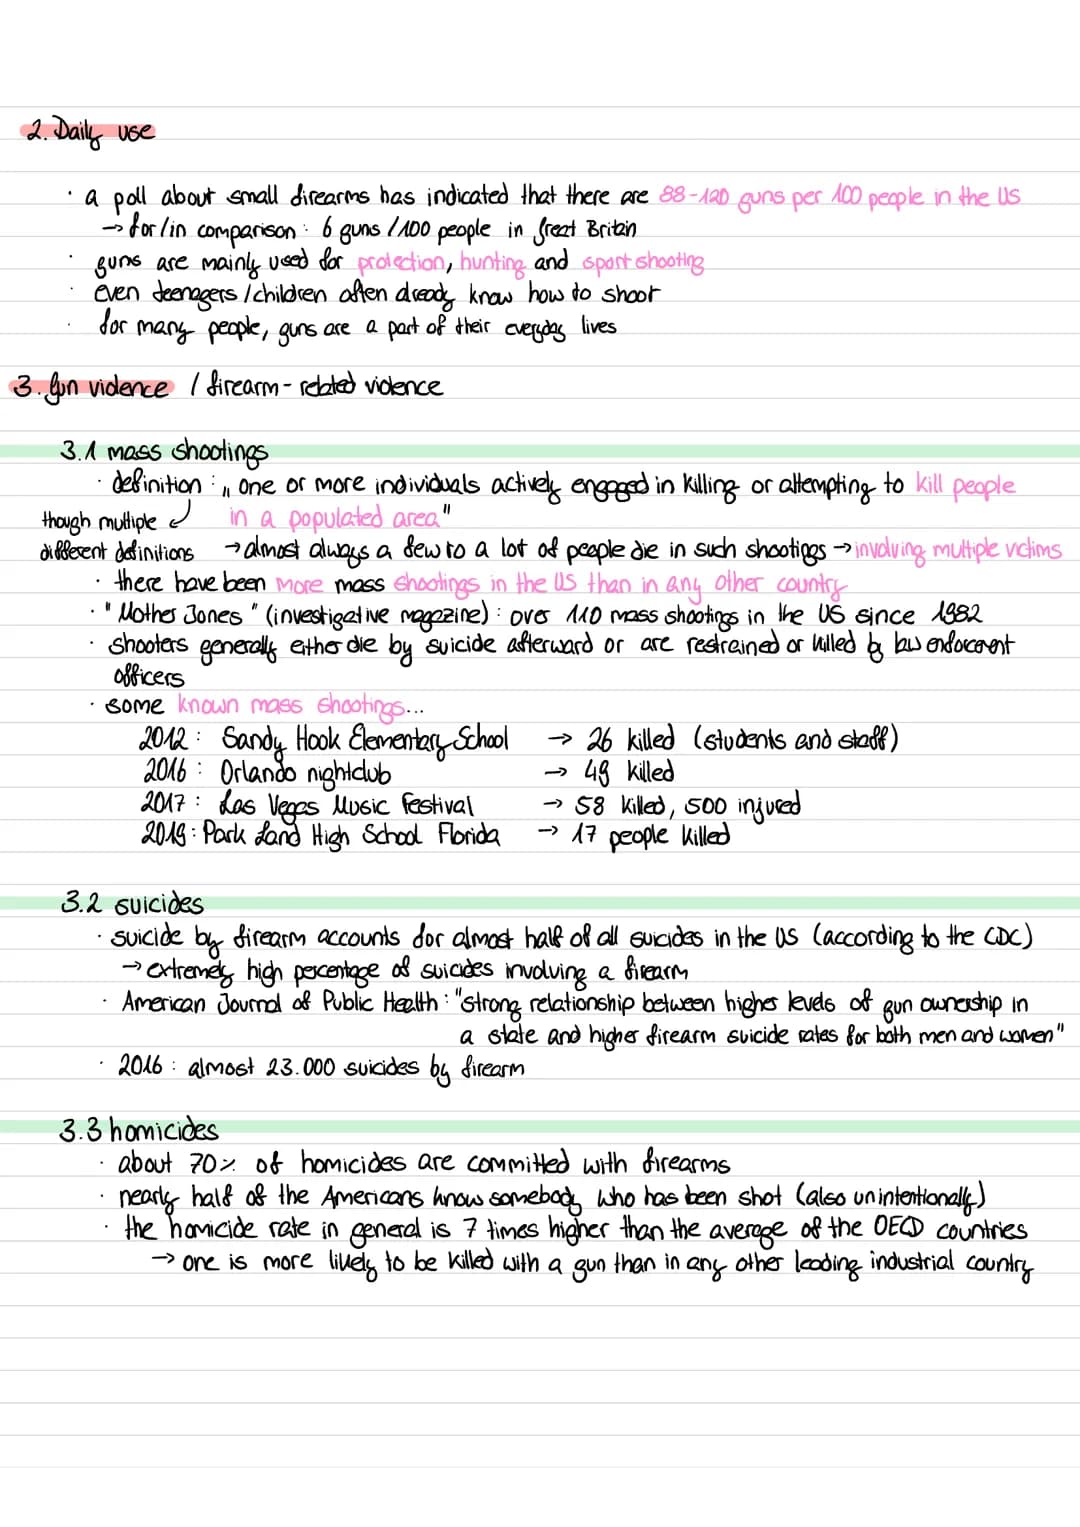 2. Daily use
· a poll about small firearms has indicated that there are 88-120 guns per 100 people in the US
→ for/in comparison: 6 guns /100 people in Great Britain
· guns are mainly used for protection, hunting and sport shooting
· even teenagers/children often already know how to shoot
· for many people, guns are a part of their everyday lives
3. Gun violence / firearm-related violence
3.1 mass shootings
· definition: „one or more individuals actively engaged in killing or attempting to kill people
though multiple in a populated area"
different definitions → almost always a few to a lot of people die in such shootings → involving multiple victims
· there have been more mass shootings in the US than in any other country
· "Mother Jones" (investigative magazine): over 110 mass shootings in the US since 1982
· shooters generally either die by suicide afterward or are restrained or killed by law enforcement
officers
· some known mass shootings...
2012: Sandy Hook Elementary School → 26 killed (students and staff)
2016: Orlando nightclub → 49 killed
2017: Las Vegas Music Festival → 58 killed, 500 injured
2019: Park Land High School Florida → 17 people killed
3.2 suicides
· suicide by firearm accounts for almost half of all suicides in the US (according to the CDC)
→ extremely high percentage of suicides involving a firearm
· American Journal of Public Health: "strong relationship between higher levels of gun ownership in
a state and higher firearm suicide rates for both men and women"
· 2016: almost 23.000 suicides by firearm
3.3 homicides
· about 70% of homicides are committed with firearms
· nearly half of the Americans know somebody who has been shot (also unintentionally)
· the homicide rate in general is 7 times higher than the average of the OECD countries
→ one is more likely to be killed with a gun than in any other leading industrial country